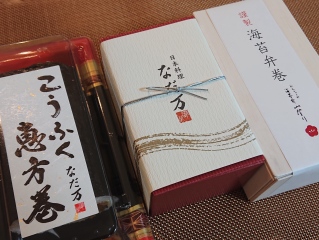 こうふく
恵方巻
なだ万
日本料理
なだ万
謹製
海苔弁巻